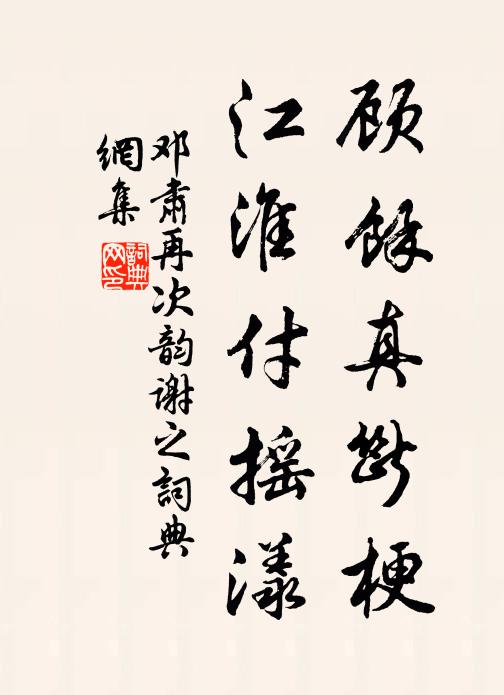 顾馀真断梗
江淮付摇漾
邓肃再次韵谢之词典
網集
詞典網印